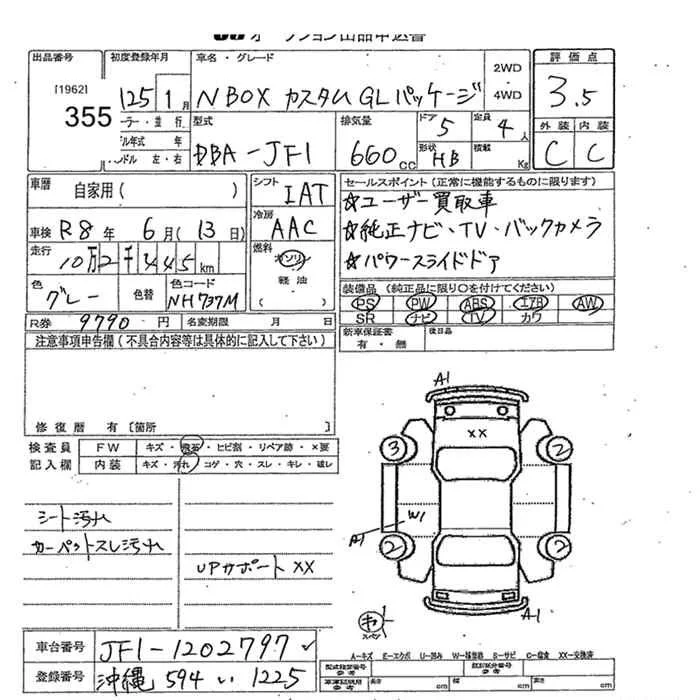 オークション出品申込書
出品番号 初度登録年月 車名・グレード 評価点
[1962] 355 25 1月 N BOX カスタム GLパッケージ 2WD・4WD 3.5
ドル年式 年 型式 排気量 ドア 5 定員 4人 外装 内装
ンドル 左・右 DBA-JF1 660cc 形状 HB 積載 Kg C C
車歴 自家用( ) シフト IAT セールスポイント(正常に機能するものに限ります)
車検 R8年 6月(13日) 冷房 AAC ☆ユーザー買取車
☆純正ナビ、TV・バックカメラ
走行 10万2千445km 燃料 ガソリン ☆パワースライドドア
軽油
( )
色 グレー 色替 色コード NH737M 装備品(純正品に限り○を付けてください)
PS PW ABS エアB AW
R券 9790円 名変期限 月 日 SR ナビ TV カワ
注意事項申告欄(不具合内容等は具体的に記入して下さい) 新車保証書 有・無 後日品
修復歴 有[箇所 ]
検査員 FW キズ・飛石・ヒビ割・リペア跡・×要
記入欄 内装 キズ・汚れ・コゲ・穴・スレ・キレ・破レ
シート汚れ
カーペットスレ汚れ
UPサポート XX
A1
XX
3 2
W1
A1
2 2
キ
スペア
A1
車台番号 JF1-1202797
登録番号 沖縄 594 い 1225
A-キズ E-エクボ U-凹み W-補修跡 S-サビ C-腐食 XX-交換済
長さ cm 幅 cm 高さ cm